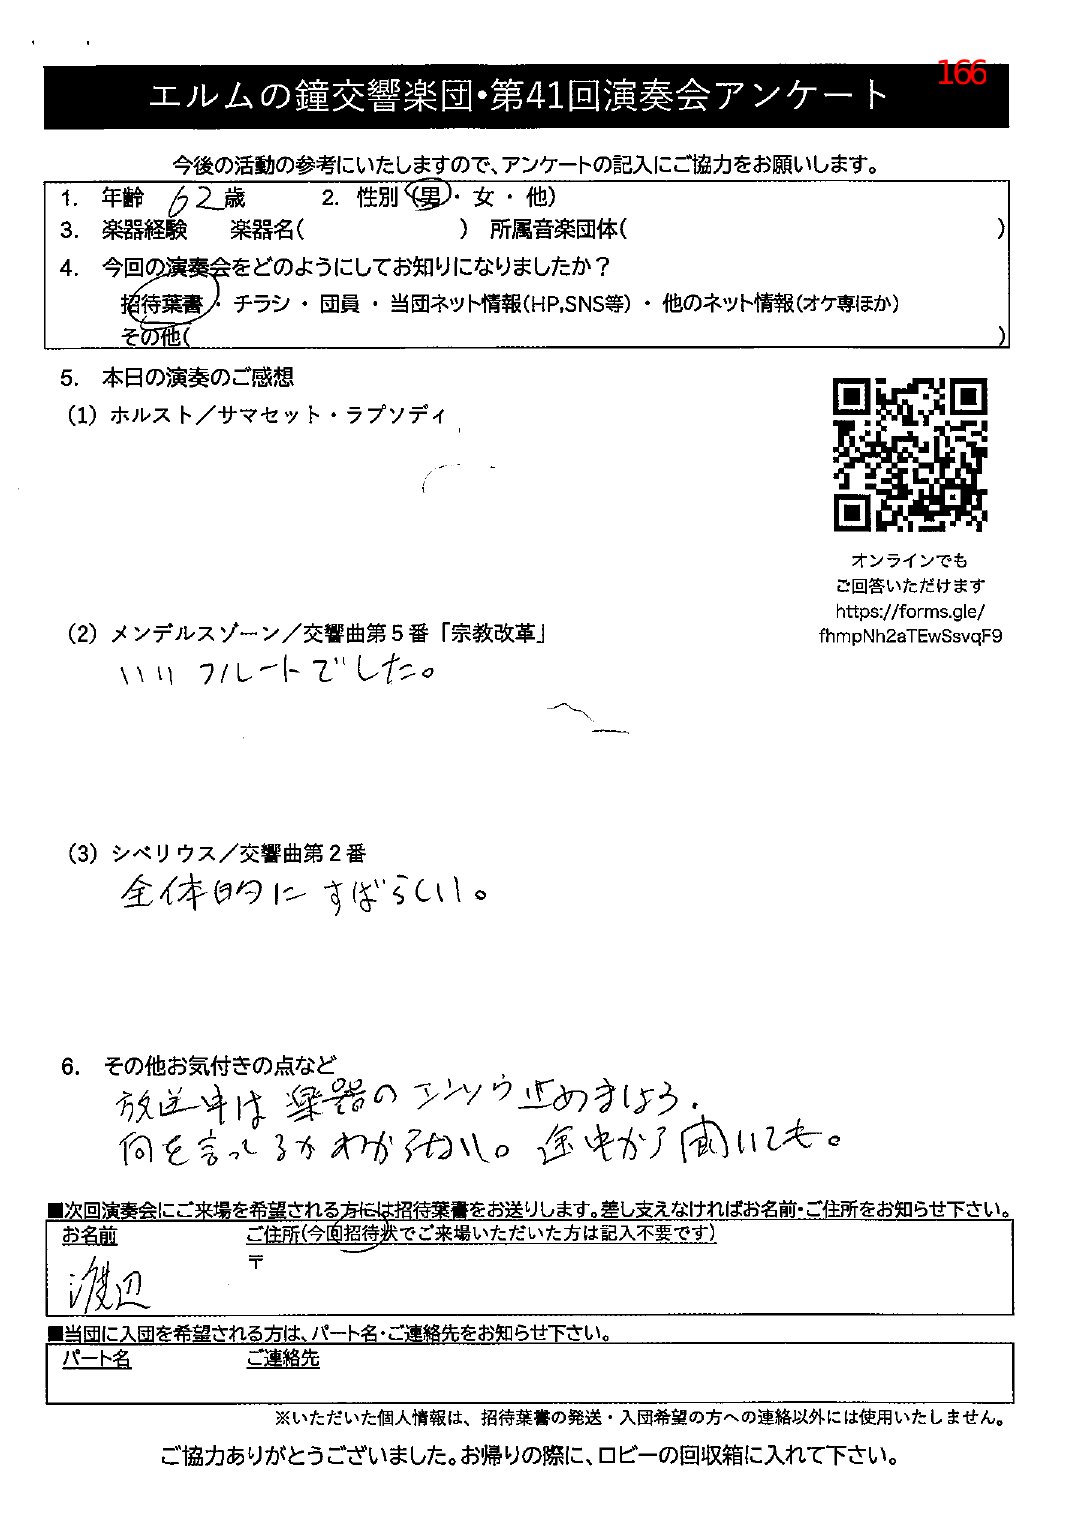 166
エルムの鐘交響楽団・第41回演奏会アンケート
今後の活動の参考にいたしますので、アンケートの記入にご協力をお願いします。
1. 年齢 62歳 2. 性別(男・女・他)
3. 楽器経験 楽器名( ) 所属音楽団体( )
4. 今回の演奏会をどのようにしてお知りになりましたか？
招待葉書・チラシ・団員・当団ネット情報(HP,SNS等)・他のネット情報(オケ専ほか)
その他( )
5. 本日の演奏のご感想
(1) ホルスト／サマセット・ラプソディ
オンラインでも
ご回答いただけます
https://forms.gle/
fhmpNh2aTEwSsvqF9
(2) メンデルスゾーン／交響曲第５番「宗教改革」
いい フルートでした。
(3) シベリウス／交響曲第２番
全体的に すばらしい。
6. その他お気付きの点など
放送中は 楽器の エンソウ止めましょう.
何を言ってるかわからない。途中から聞いても。
■次回演奏会にご来場を希望される方には招待葉書をお送りします。差し支えなければお名前・ご住所をお知らせ下さい。
お名前 ご住所(今回招待状でご来場いただいた方は記入不要です)
〒
渡辺
■当団に入団を希望される方は、パート名・ご連絡先をお知らせ下さい。
パート名 ご連絡先
※いただいた個人情報は、招待葉書の発送・入団希望の方への連絡以外には使用いたしません。
ご協力ありがとうございました。お帰りの際に、ロビーの回収箱に入れて下さい。